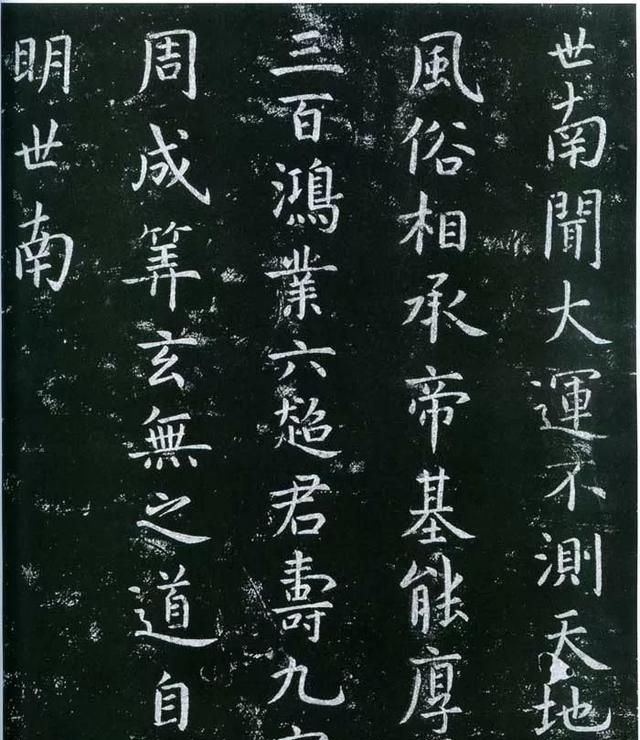 世南聞大運不測天地
風俗相承帝基能厚
三百鴻業六超君壽九
周成筭玄無之道自
明世南